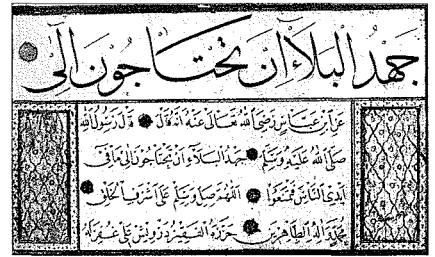 جَهْدُ البَلَاءِ اَنْ تَحْتَاجُونَ اِلَى
عَنِ ابْنِ عَبَّاسٍ رَضِيَ اللهُ تَعَالَى عَنْهُ اَنَّهُ قَالَ قَالَ رَسُولُ اللهِ
صَلَّى اللهُ عَلَيْهِ وَسَلَّمَ جَهْدُ البَلَاءِ اَنْ تَحْتَاجُونَ اِلَى مَا فِي
اَيْدِي النَّاسِ فَتُمْنَعُوا اَللّٰهُمَّ صَلِّ وَسَلِّمْ عَلَى اَشْرَفِ الْخَلْقِ
مُحَمَّدٍ وَآلِهِ الطَّاهِرِينَ حَرَّرَهُ الْفَقِيرُ دَرْوِيش عَلِي غُفِرَ لَهُ